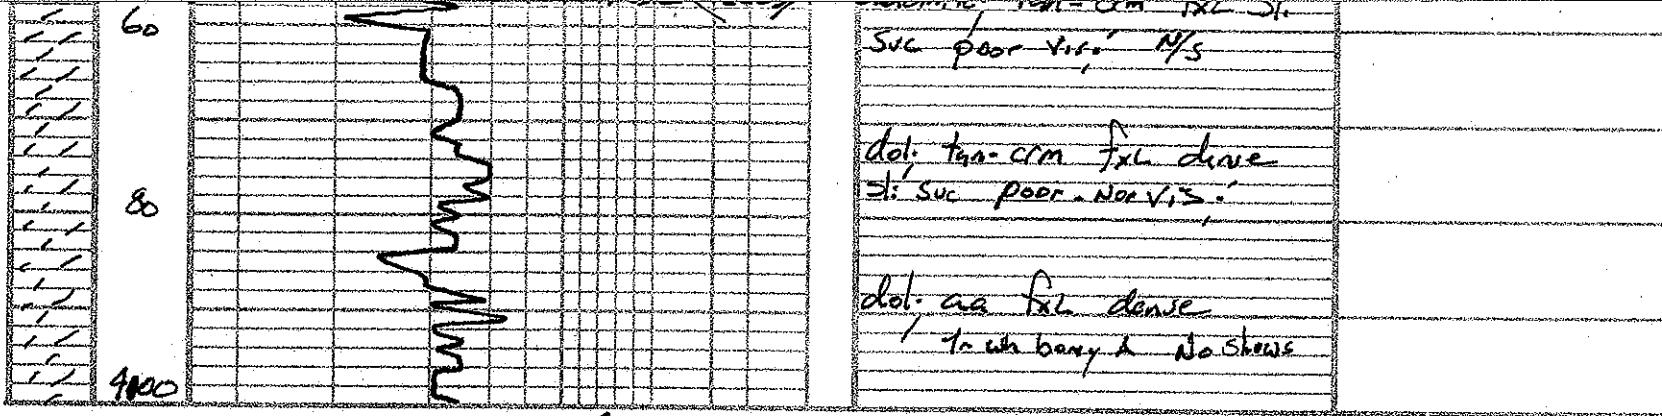 60
tan-crm fxl sl.
suc poor vis; N/S
dol; tan-crm fxl dense
sl; suc poor-nor vis;
80
dol; aa fxl dense
Tr wh bony A No Shows
4000